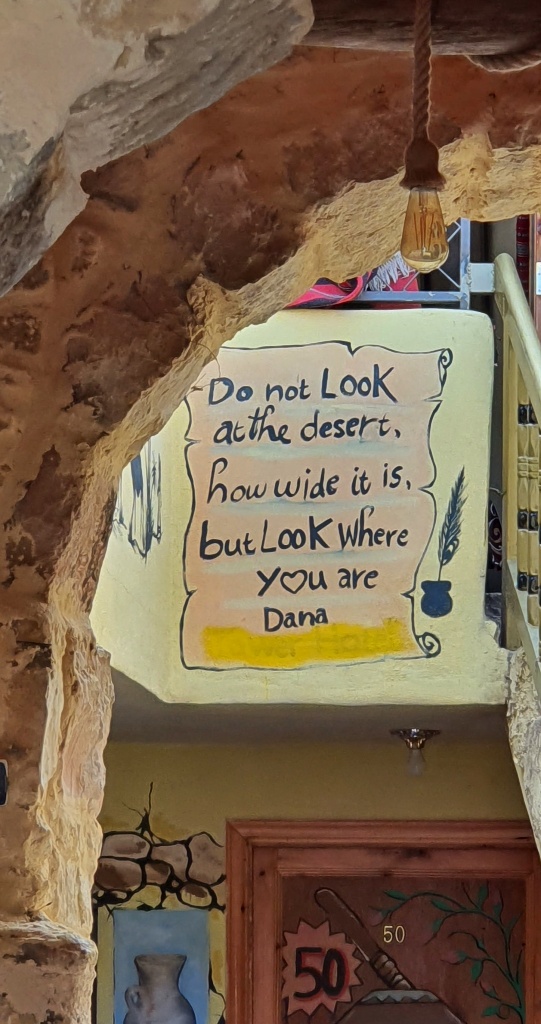 Do not LOOK
at the desert,
how wide it is,
but LOOK Where
y♡u are
Dana
50
50